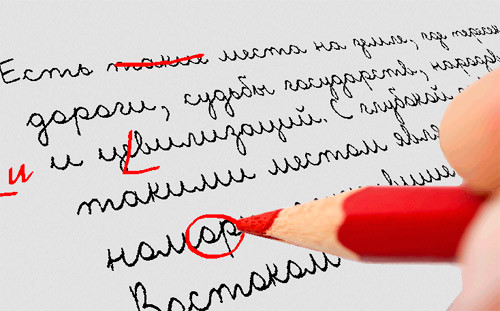 Есть такие места на земле, где пересе
дороги, судьбы государств, народов
и и цвилизаций. С глубокой
такими местом явле
номор вшие
Востоком